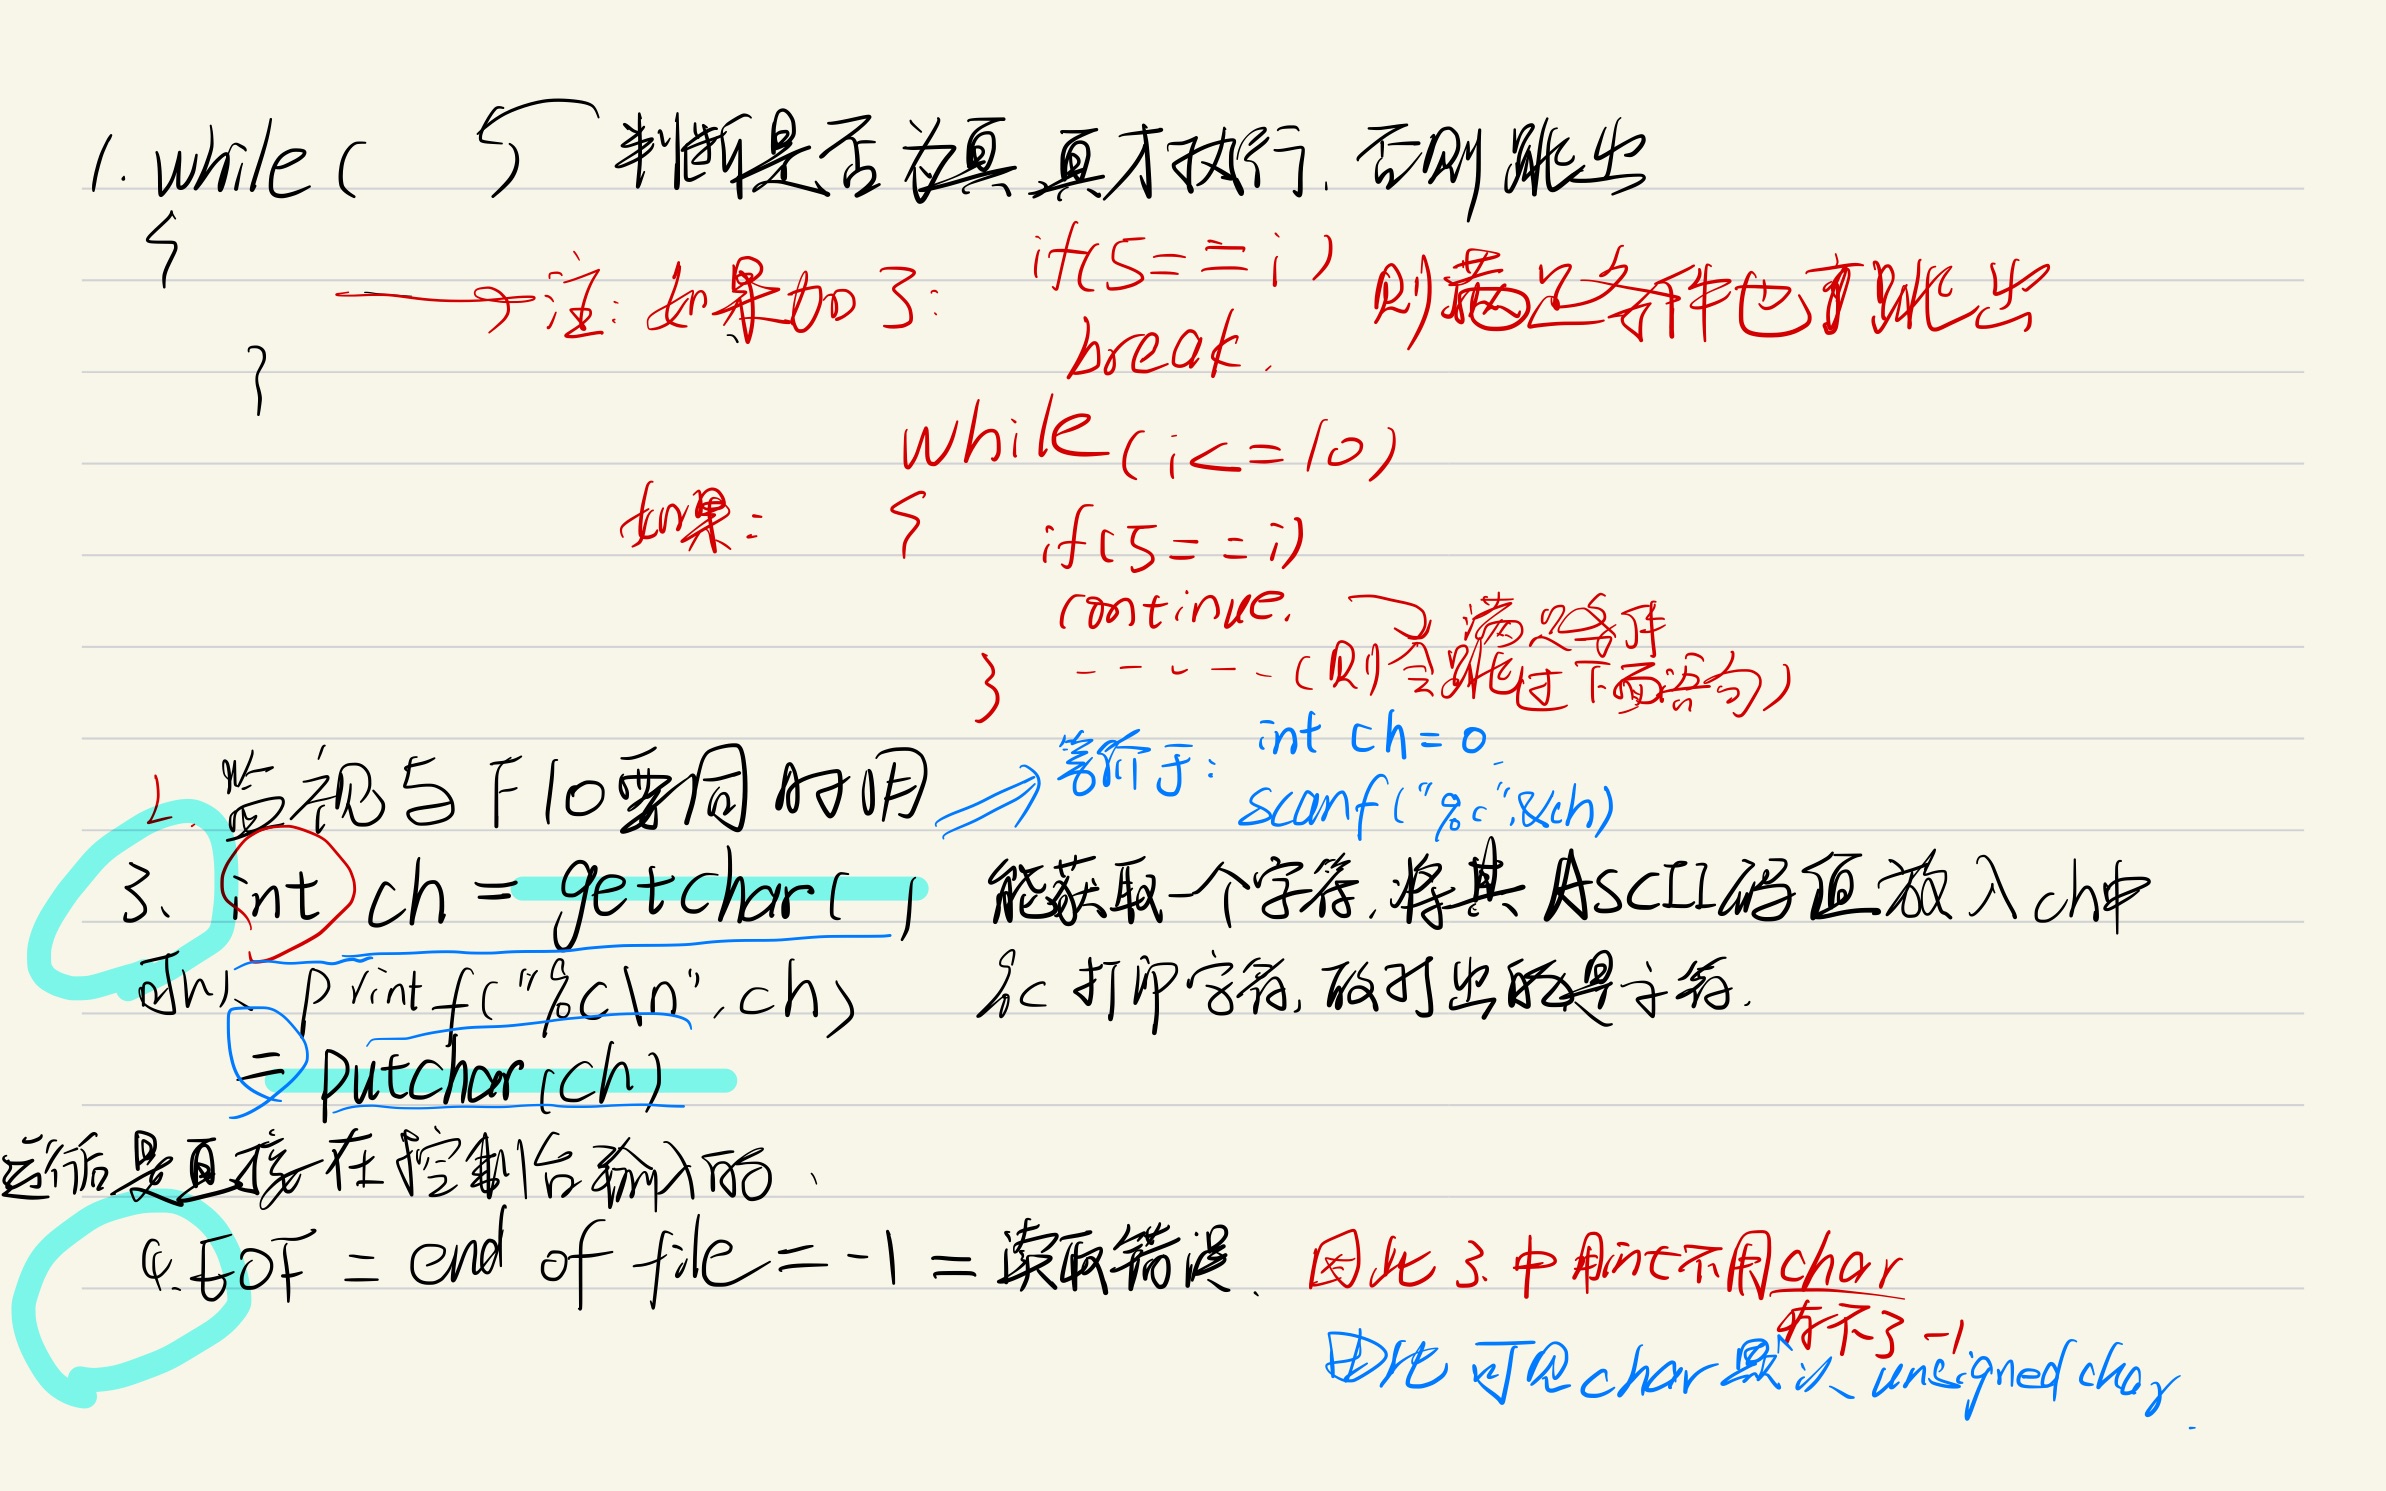 1. while (      ) 判断是否为真 真才执行. 否则跳出
{
注: 如果加了: if(5==i) 则满足条件也可跳出
break.
}
while (i<=10)
如果: { if(5==i)
continue. 满足条件
} ----- (则会跳过下面语句)
2. 监视与F10要同时用 等价于: int ch=0
scanf("%c",&ch)
3、int ch = getchar( ) 能获取一个字符.将其ASCII码值放入ch中
可以、printf("%c\n",ch) %c打印字符,故打出的是字符.
= putchar(ch)
运行后是直接在控制台输入的、
4. EOF = end of file = -1 = 读取错误. 因此3、中用int不用char
存不了-1
由此可见char默认unsigned char.